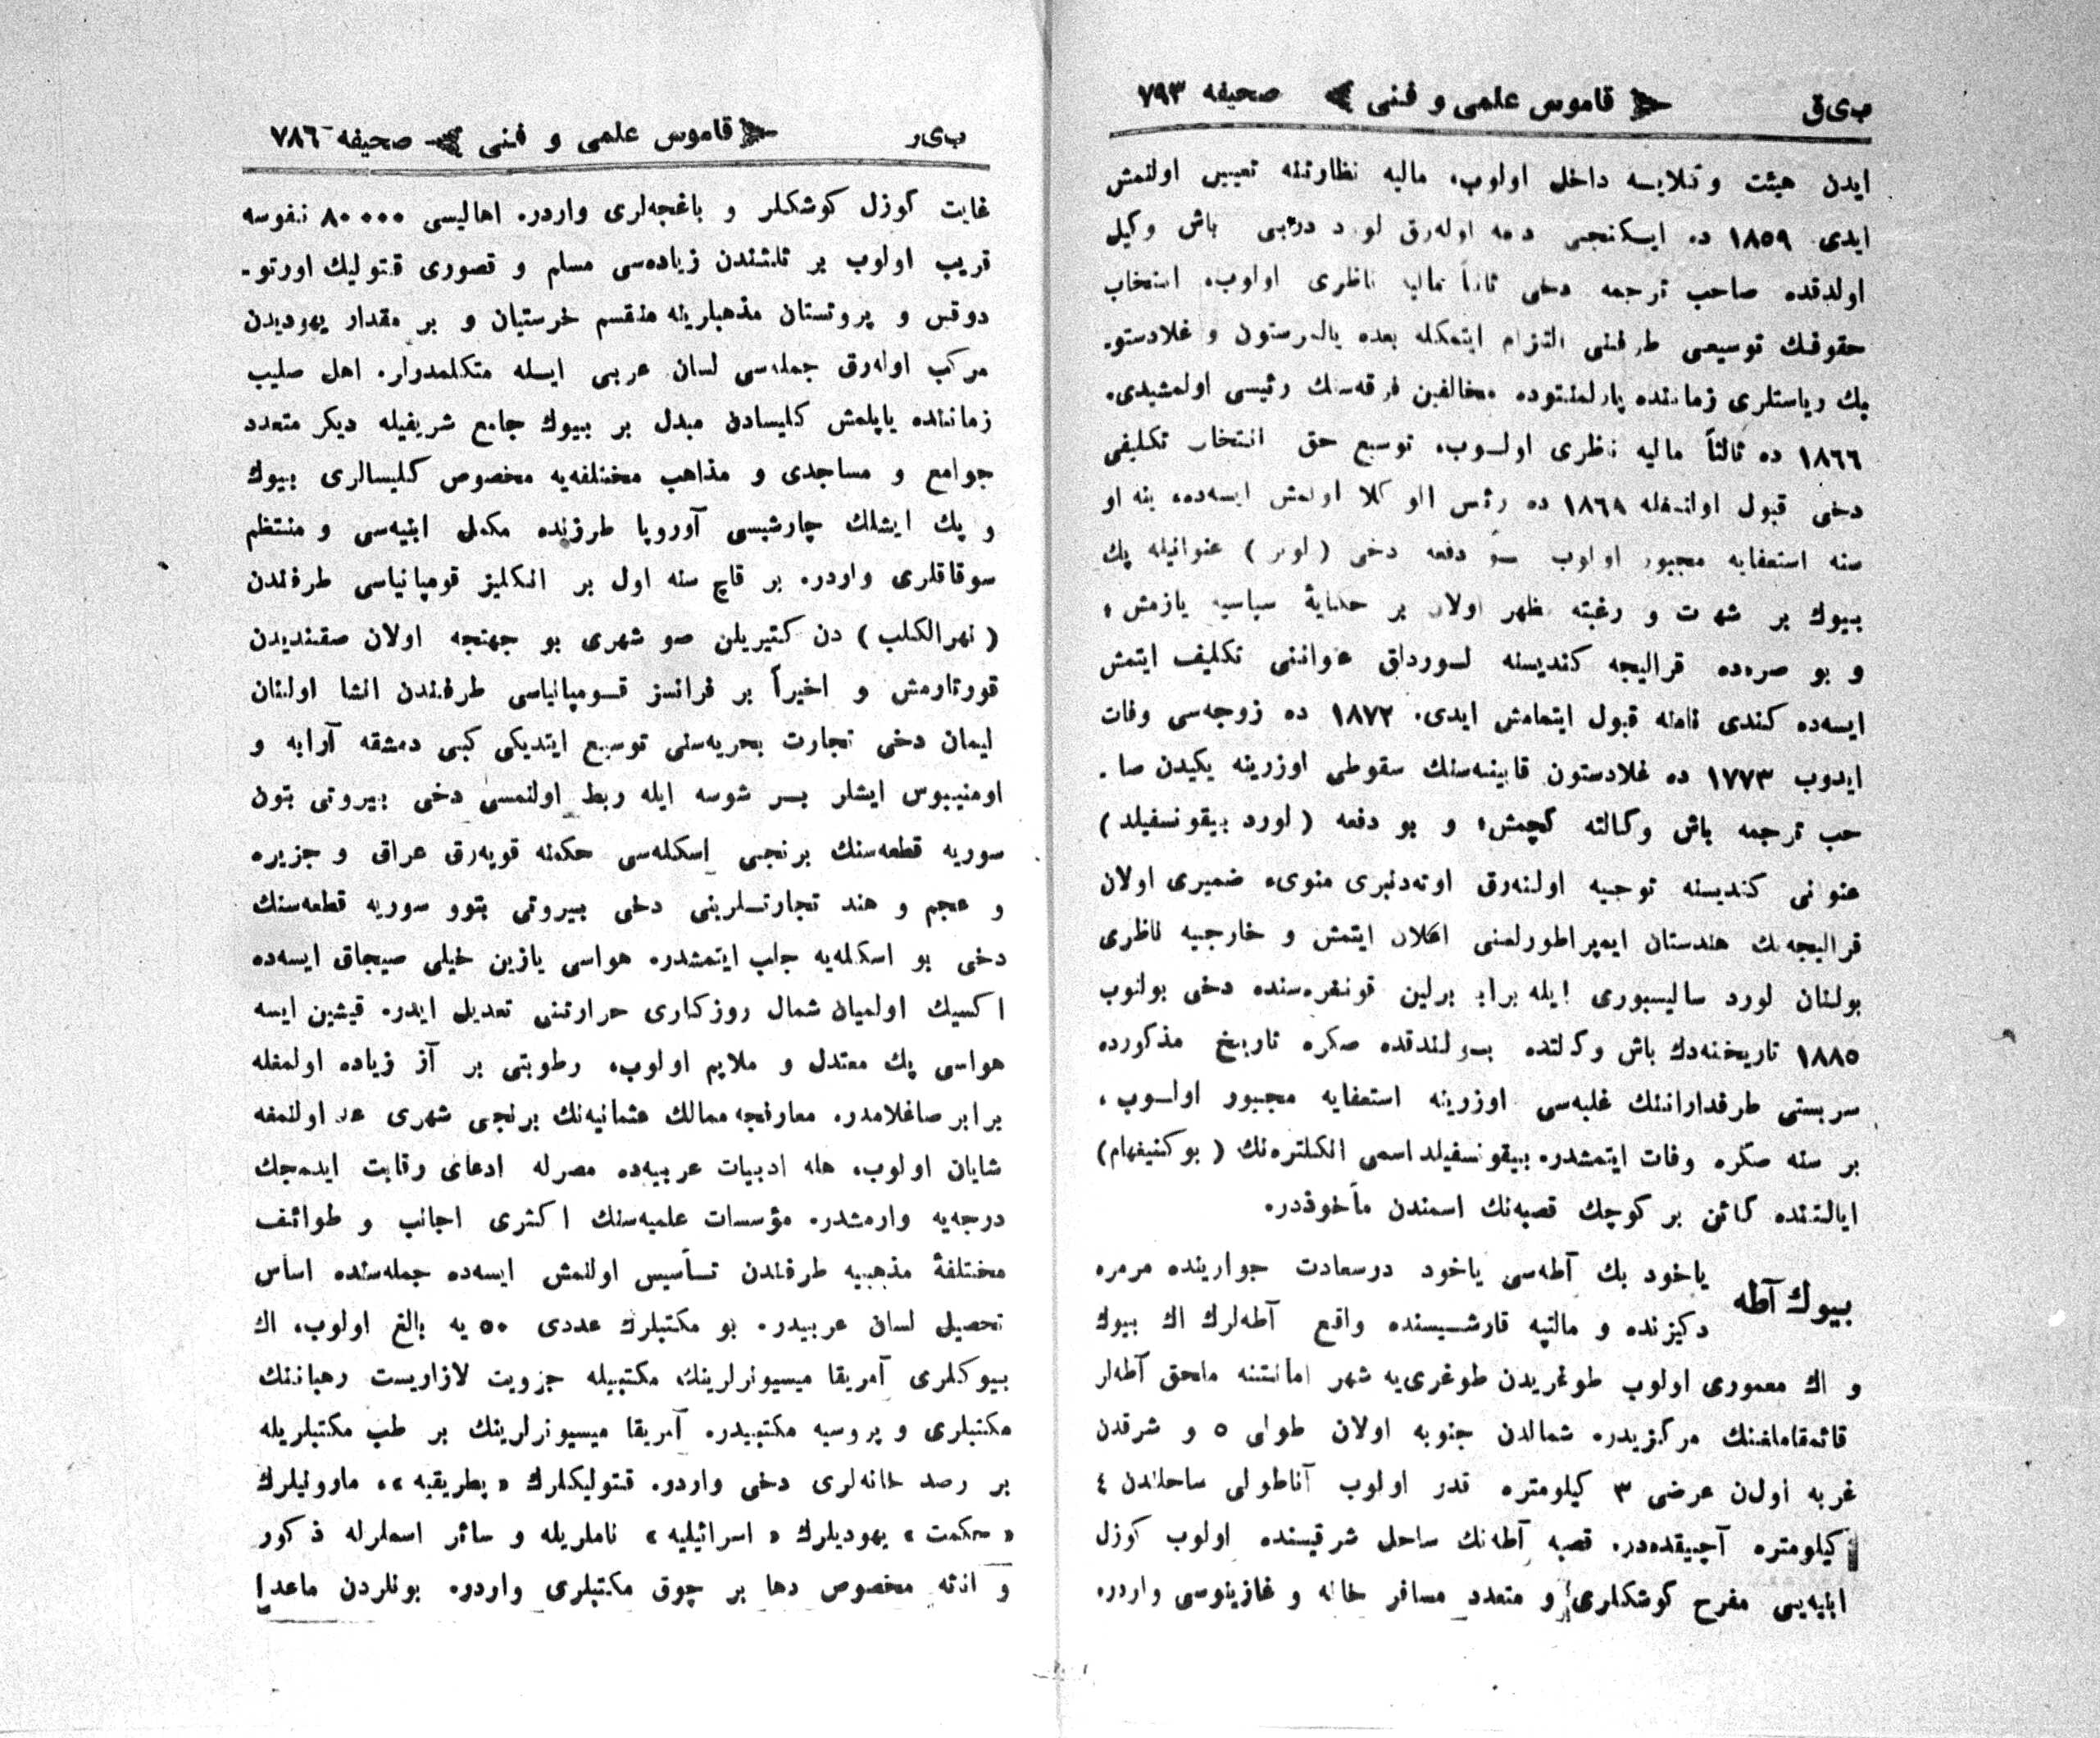 ب‌ی‌ق قاموس علمی و فنی صحیفه ٧٩٣
ایدن هیئت وکلایه داخل اولوب، مالیه نظارتنه تعیین اولنمش
ایدی. ١٨٥٩ ده ایکنجی دفعه اوله‌رق لورد دربی باش وکیل
اولدقده صاحب ترجمه دخی ثانیاً مالیه ناظری اولوب، انتخاب
حقوقنك توسیعی طرفنی التزام ایتمکله بعده پالمرستون و غلادستو۔
نك ریاستلری زماننده پارلمنتوده مخالفین فرقه‌سنك رئیسی اولمشیدی.
١٨٦٦ ده ثالثاً مالیه ناظری اولوب، توسیع حق انتخاب تکلیفی
دخی قبول اولنمغله ١٨٦٨ ده رئیس الوکلا اولمش ایسه‌ده، ینه او
سنه استعفایه مجبور اولوب بو دفعه دخی (لوتر) عنوانیله پك
بیوك بر شهرت و رغبته مظهر اولان بر حکایهٔ سیاسیه یازمش؛
و بو صره‌ده قرالیچه کندیسنه لوردلق عنواننی تکلیف ایتمش
ایسه‌ده کندی نامنه قبول ایتمامش ایدی. ١٨٧٢ ده زوجه‌سی وفات
ایدوب ١٧٧٣ ده غلادستون قابینه‌سنك سقوطی اوزرینه یکیدن صا۔
حب ترجمه باش وکالته کچمش؛ و بو دفعه (لورد بیقونسفیلد)
عنوانی کندیسنه توجیه اولنه‌رق اوته‌دنبری منوی، ضمیری اولان
قرالیچه‌نك هندستان ایمپراطورلغنی اعلان ایتمش و خارجیه ناظری
بولنان لورد سالیسبوری ایله برابر برلین قونغره‌سنده دخی بولنوب
١٨٨٥ تاریخنه‌دك باش وکالتده بولندقده صکره تاریخ مذکورده
سربستی طرفدارانینك غلبه‌سی اوزرینه استعفایه مجبور اولوب،
بر سنه صکره وفات ایتمشدر. بیقونسفیلد اسمی انکلتره‌نك (بوکنیفهام)
ایالتنده کائن بر کوچك قصبه‌نك اسمندن مأخوذدر.
بیوك آطه یاخود بك آطه‌سی یاخود درسعادت جوارینده مرمره
دکیزنده و مالتپه قارشیسنده واقع آطه‌لرك اك بیوك
و اك معموری اولوب طوغریدن طوغری‌یه شهر امانتنه ملحق آطه‌لر
قائمقاملغنك مرکزیدر. شمالدن جنوبه اولان طولی ٥ و شرقدن
غربه اولان عرضی ٣ کیلومتره قدر اولوب آناطولی ساحلندن ٤
کیلومتره آچیقده‌در. قصبه آطه‌نك ساحل شرقیسنده اولوب کوزل
ابنیه‌یی مفرح کوشکلری و متعدد مسافر خانه و غازینوسی واردر.
ب‌ی‌ر قاموس علمی و فنی صحیفه ٧٨٦
غایت کوزل کوشکلر و باغچه‌لری واردر. اهالیسی ٨٠٠٠٠ نفوسه
قریب اولوب بر ثلثندن زیاده‌سی مسلم و قصوری قتولیك اورتو۔
دوقس و پروتستان مذهبلرینه منقسم خرستیان و بر مقدار یهودیدن
مرکب اوله‌رق جمله‌سی لسان عربی ایله متکلمدرلر. اهل صلیب
زماننده یاپلمش کلیسادن مبدل بر بیوك جامع شریفیله دیکر متعدد
جوامع و مساجدی و مذاهب مختلفه‌یه مخصوص کلیسالری بیوك
و پك ایشلك چارشیسی آوروپا طرزنده مکمل ابنیه‌سی و منتظم
سوقاقلری واردر. بر قاچ سنه اول بر انکلیز قومپانیاسی طرفندن
(نهرالکلب) دن کتیریلن صو شهری بو جهتجه اولان صقندیدن
قورتارمش و اخیراً بر فرانسز قومپانیاسی طرفندن انشا اولنان
لیمان دخی تجارت بحریه‌سنی توسیع ایتدیکی کبی دمشقه آرابه و
اومنیبوس ایشلر بر شوسه ایله ربط اولنمسی دخی بیروتی بتون
سوریه قطعه‌سنك برنجی اسکله‌سی حکمنه قویه‌رق عراق و جزیره
و عجم و هند تجارتلرینی دخی بیروتی بتوو سوریه قطعه‌سنك
دخی بو اسکله‌یه جلب ایتمشدر. هواسی یازین خیلی صیجاق ایسه‌ده
اکسیك اولمیان شمال روزکاری حرارتنی تعدیل ایدر. قیشین ایسه
هواسی پك معتدل و ملایم اولوب، رطوبتی بر آز زیاده اولمغله
برابر صاغلامدر. معارفجه ممالك عثمانیه‌نك برنجی شهری عد اولنمغه
شایان اولوب، هله ادبیات عربیه‌ده مصرله ادعای رقابت ایده‌جك
درجه‌یه وارمشدر. مؤسسات علمیه‌سنك اکثری اجانب و طوائف
مختلفهٔ مذهبیه طرفندن تأسیس اولنمش ایسه‌ده جمله‌سنده اساس
تحصیل لسان عربیدر. بو مکتبلرك عددی ٥٠ یه بالغ اولوب، اك
بیوکلری آمریقا میسیونرلرینك مکتبیله جزویت لازاریست رهباننك
مکتبلری و پروسیه مکتبیدر. آمریقا میسیونرلرینك بر طب مکتبلریله
بر رصد خانه‌لری دخی واردر. قتولیکلرك «بطریقیه»، مارونیلرك
«حکمت» یهودیلرك «اسرائیلیه» ناملریله و سائر اسملرله ذکور
و اناثه مخصوص دها بر چوق مکتبلری واردر. بونلردن ماعدا